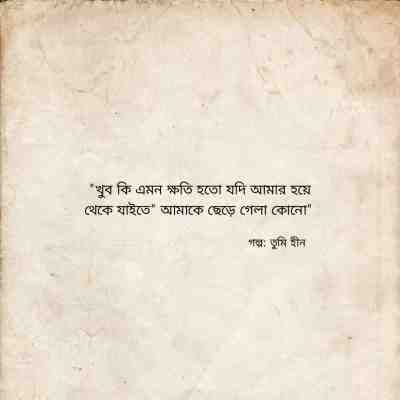 "খুব কি এমন ক্ষতি হতো যদি আমার হয়ে
থেকে যাইতে" আমাকে ছেড়ে গেলা কোনো"
গল্প: তুমি হীন